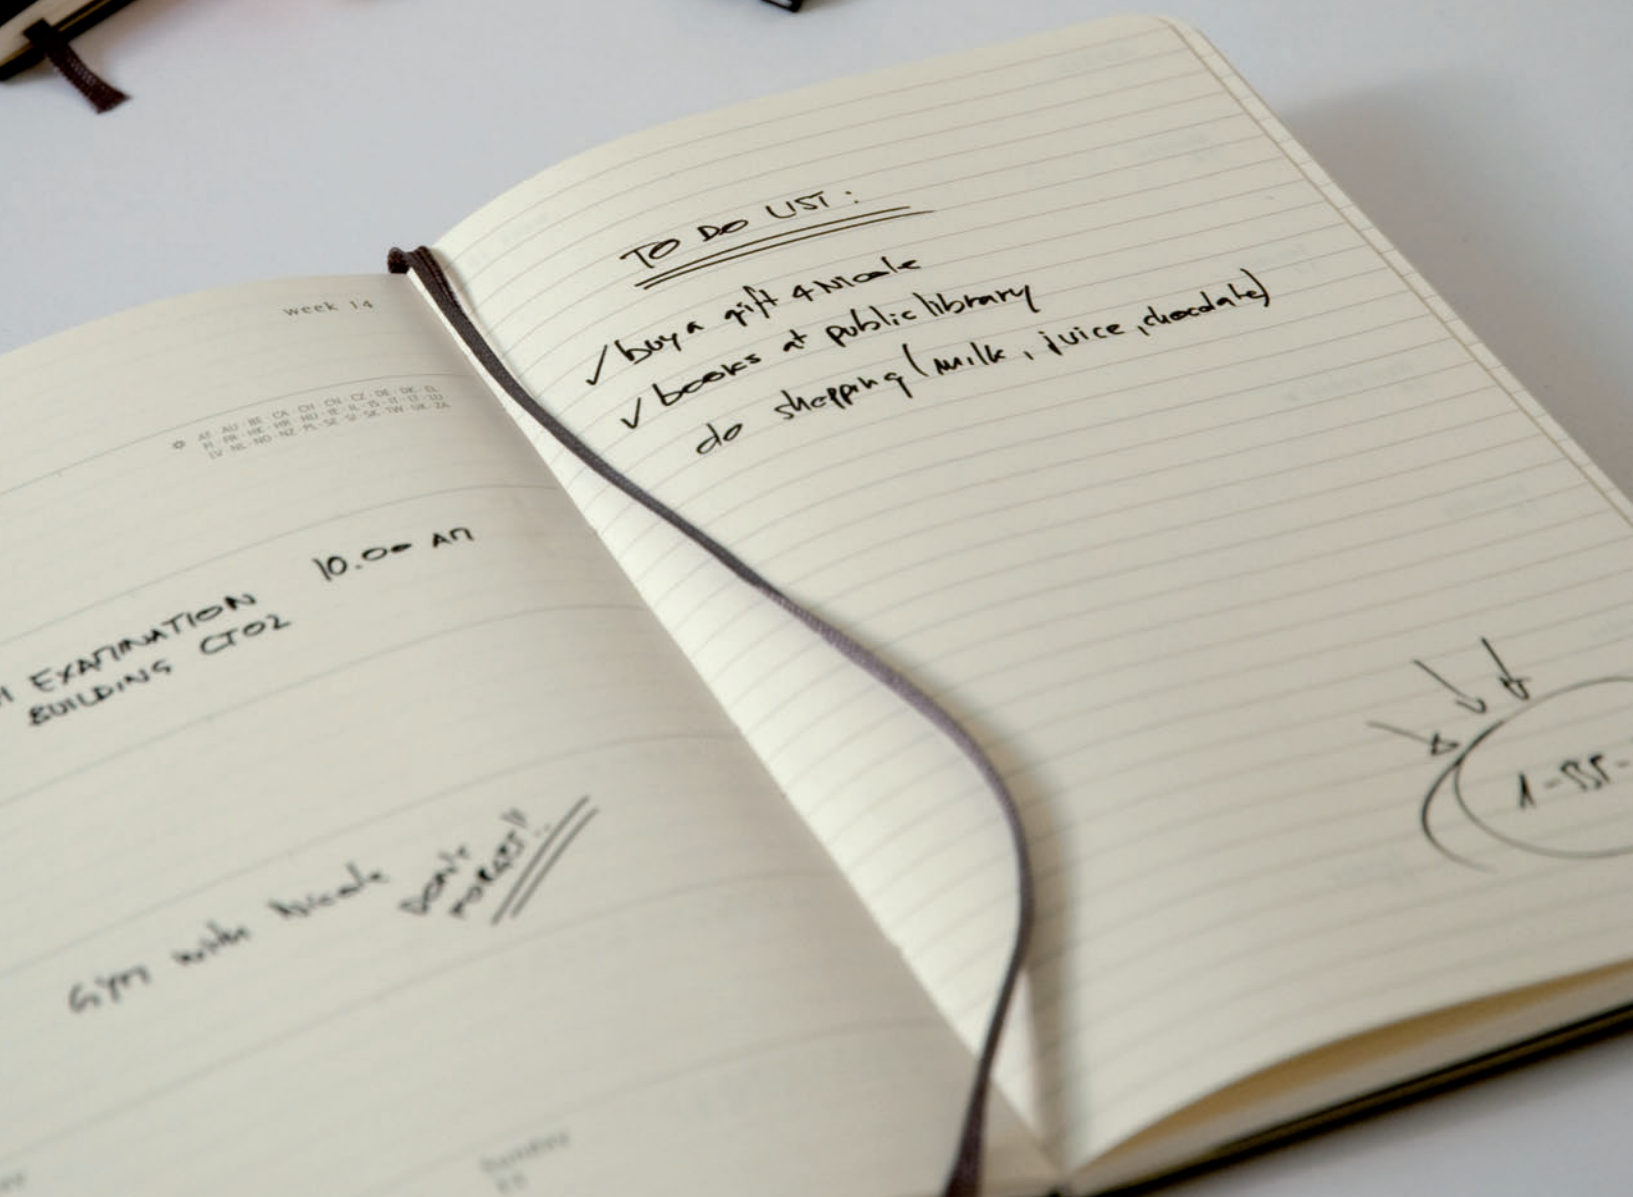 week 14
AT · AU · BE · CA · CH · CN · CZ · DE · DK · EL
FI · FR · HK · HR · HU · IE · IL · IS · IT · LT · LU
LV · NL · NO · NZ · PL · SE · SI · SK · TW · UK · ZA
10.00 AM
EXAMINATION
BUILDING CT02
Gym with Nicole
DON'T
FORGET!!
TO DO LIST:
✓ buy a gift 4 Nicole
✓ books at public library
do shopping (milk, juice, chocolate)